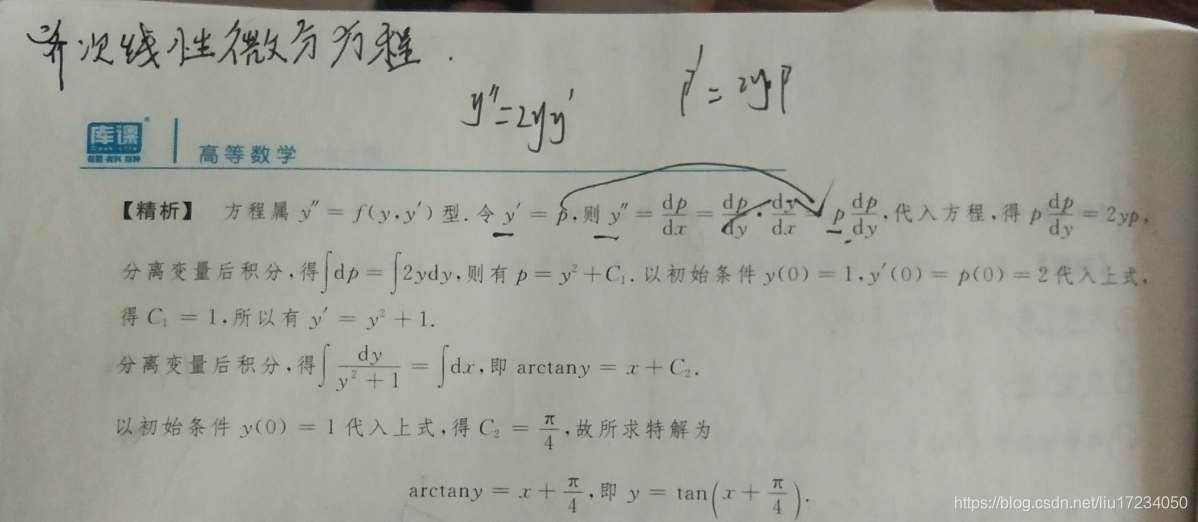 齐次线性微分方程.
y″=2yy′
p′=2yp
库课
高等数学
【精析】 方程属 y″ = f(y,y′) 型.令 y′ = p,则 y″ = dp/dx = dp/dy · dy/dx = p dp/dy,代入方程,得 p dp/dy = 2yp,
分离变量后积分,得∫dp = ∫2ydy,则有 p = y² + C₁.以初始条件 y(0) = 1,y′(0) = p(0) = 2代入上式,
得 C₁ = 1,所以有 y′ = y² + 1.
分离变量后积分,得∫ dy/(y² + 1) = ∫dx,即 arctany = x + C₂.
以初始条件 y(0) = 1 代入上式,得 C₂ = π/4,故所求特解为
arctany = x + π/4,即 y = tan(x + π/4).
https://blog.csdn.net/liu17234050